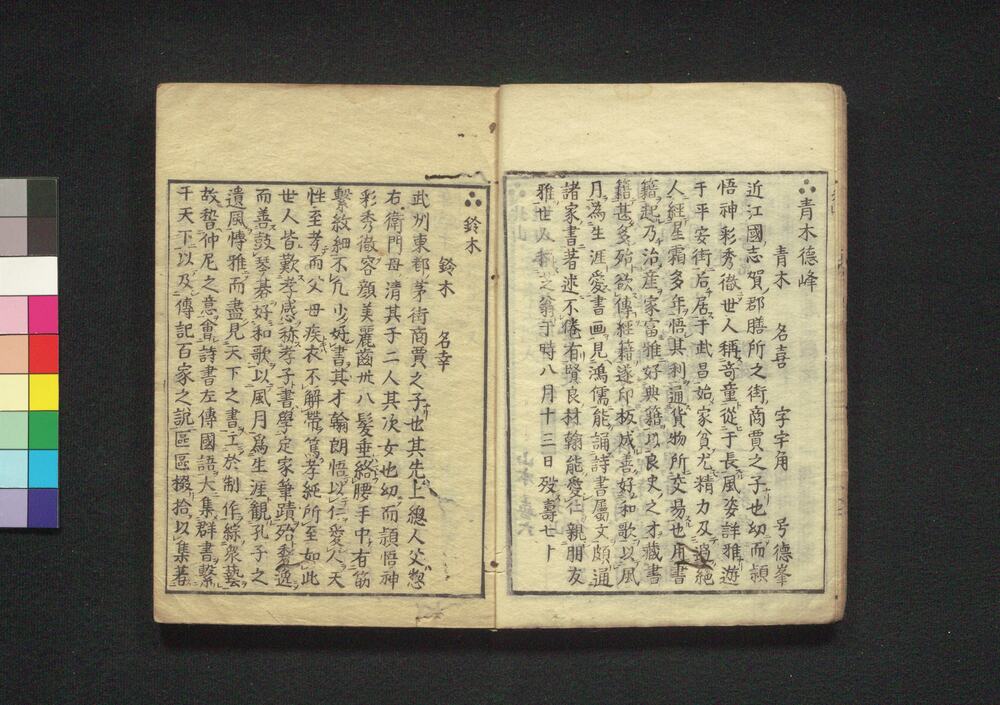 青木德峰
青木　名喜　字宇角　号德峯
近江國志賀郡膳所之街商賈之子也幼而頴
悟神彩秀徹世人稱奇童從于長風姿詳雅遊
于平安街后居于武昌始家貧尤精力及絕
人經星霜多年悟其利通貨物所交易也用書
籍起乃治産家富雅好典籍以良史之才藏書
籍甚多殆欲傳經籍遂印板成善好和歌以風
月為生涯愛書画見鴻儒能誦詩書屬文頗通
諸家書著述不倦有賢良材翰能愛仁親朋友
雅世之翁于時八月十三日歿壽七十
鈴木
鈴木　名幸
武州東都茅街商賈之子也其先上總人父惣
右衛門母清其子二人其次女也幼而頴悟神
彩秀徹容顔美麗齒卅八髮垂絡腰手中有筋
繫紋細不凢少好書其才翰朗悟以仁愛人天
性至孝而父母疾衣不解帶篤孝純所至如此
世人皆歎孝感称孝子書學定家筆蹟殆秀逸
而善鼓琴碁好和歌以風月爲生涯観孔子之
遺風愽雅而盡見天下之書工於制作綜衆藝
故摯仲尼之意會詩書左傳國語大集群書繫
千天下以及傳記百家之說區區掇拾以集若